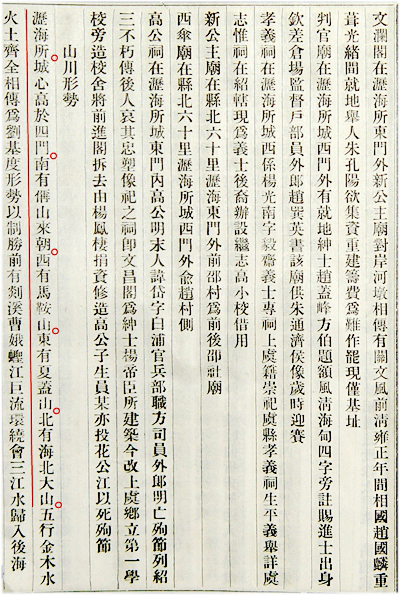 文瀾閣在瀝海所東門外新公主廟對岸河墩相傳有關文風前清雍正年間相國趙國麟重
葺光緒間就地舉人朱孔陽欲集資重建籌費爲難作罷現僅基址
判官廟在瀝海所城西門外有就地紳士趙蓋峰方伯題額風清海甸四字旁註賜進士出身
欽差倉場監督戶部員外郎趙巽英書該廟俱朱通濟侯像歲時迎賽
孝義祠在瀝海所城西係楊光南字毅齋義士專祠上虞籍崇祀虞縣孝義祠生平義舉詳處
志惟祠在紹轄現爲義士後裔辦設繼志高小校借用
新公主廟在縣北六十里瀝海東門外前邵村爲前後邵社廟
西傘廟在縣北六十里瀝海所城西門外兪趙村側
高公祠在瀝海所城東門內高公明末人諱岱字白浦官兵部職方司員外郎明亡殉節列紹
三不朽傳後人哀其忠塑像祀之祠卽文昌閣爲紳士楊帝臣所建築今改上虞鄕立第一學
校旁造校舍將前進閣拆去由楊鳳棲捐資修造高公子生員某亦投花公江以死殉節
山川形勢
瀝海所城心高於四門南有傅山來朝西有馬鞍山東有夏蓋山北有海北大山五行金木水
火土齊全相傳爲劉基度形勢以制勝前有剡溪曹娥蟶江巨流環繞會三江水歸入後海